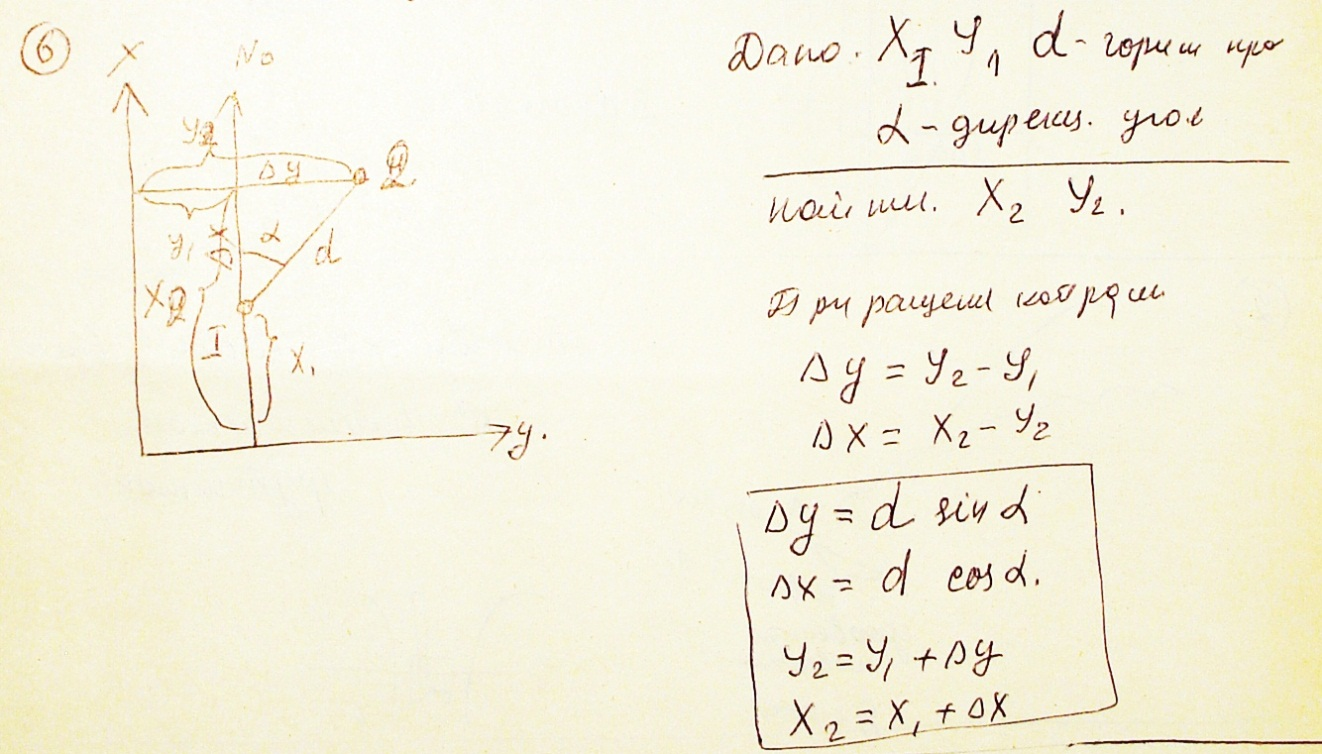 6
X No
y2
Δy 2
y1 x α d
Δ
X2 I X1
y.
Дано. XI У1 d - гориз про
α - дирекц. угол
Найти. X2 У2.
Приращени коорди
Δy = У2 - У1
ΔX = X2 - У2
Δy = d sin α
ΔX = d cos α.
У2 = У1 + Δy
X2 = X1 + ΔX